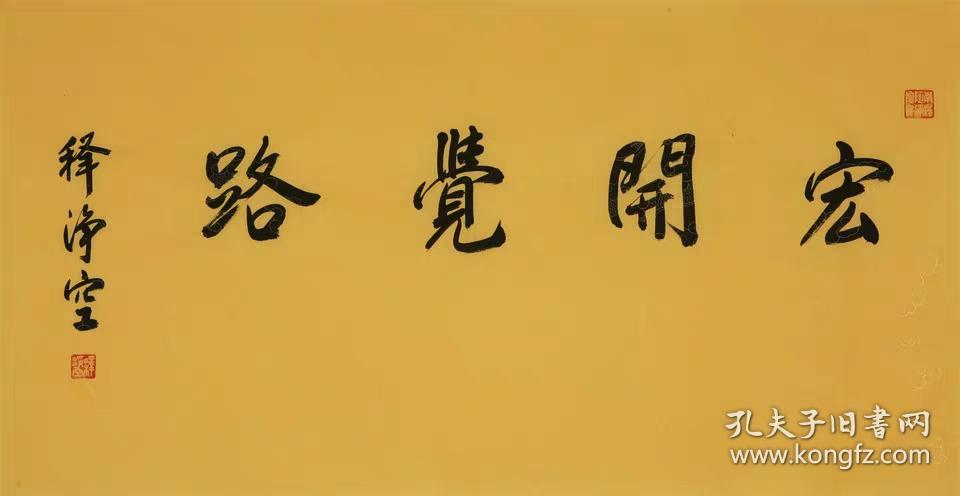 宏開覺路
释净空
孔夫子旧書网
www.kongfz.com